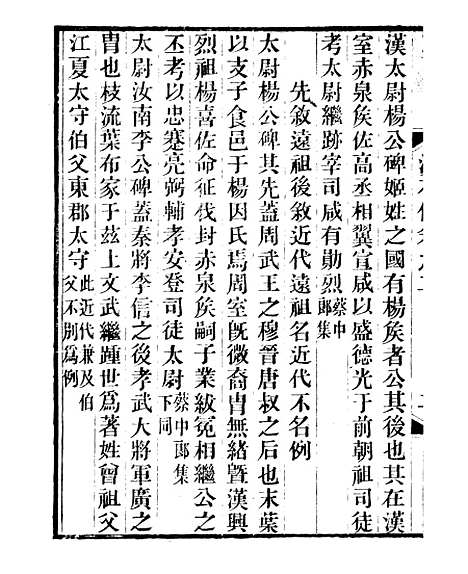 漢太尉楊公碑姬姓之國有楊矦者公其後也其在漢
室赤泉矦佐高丞相翼宣咸以盛德光于前朝祖司徒
考太尉繼跡宰司咸有勛烈蔡中郎集
先敘遠祖後敘近代遠祖名近代不名例
太尉楊公碑其先蓋周武王之穆晉唐叔之后也末葉
以支子食邑于楊因氏焉周室旣微裔胄無緒曁漢興
烈祖楊喜佐命征伐封赤泉矦嗣子業紱冕相繼公之
丕考以忠蹇亮弼輔孝安登司徒太尉蔡中郎集下同
太尉汝南李公碑蓋秦將李信之後孝武大將軍廣之
胄也枝流葉布家于茲土文武繼踵世爲著姓曾祖父
江夏太守伯父東郡太守此近代兼及伯父不別爲例